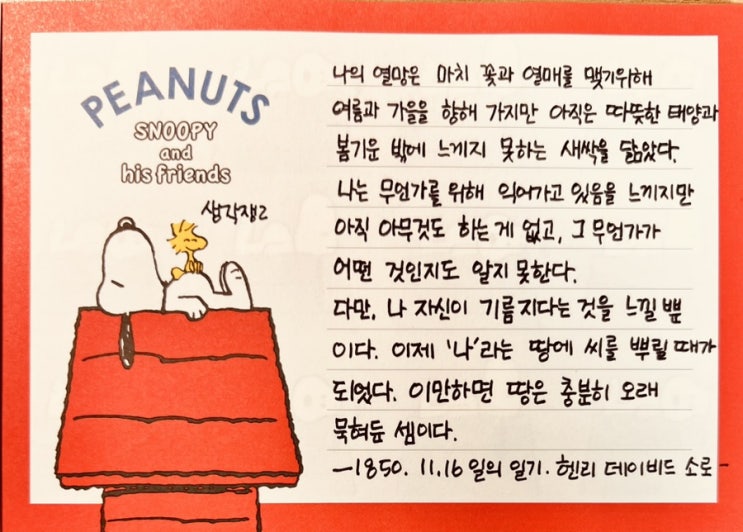 PEANUTS
SNOOPY
and
his friends
생각쟁2
나의 열망은 마치 꽃과 열매를 맺기위해
여름과 가을을 향해 가지만 아직은 따뜻한 태양과
봄기운 밖에 느끼지 못하는 새싹을 닮았다.
나는 무언가를 위해 익어가고 있음을 느끼지만
아직 아무것도 하는 게 없고, 그 무언가가
어떤 것인지도 알지 못한다.
다만, 나 자신이 기름지다는 것을 느낄 뿐
이다. 이제 '나'라는 땅에 씨를 뿌릴 때가
되었다. 이만하면 땅은 충분히 오래
묵혀둔 셈이다.
-1850. 11.16 일의 일기. 헨리 데이비드 소로-